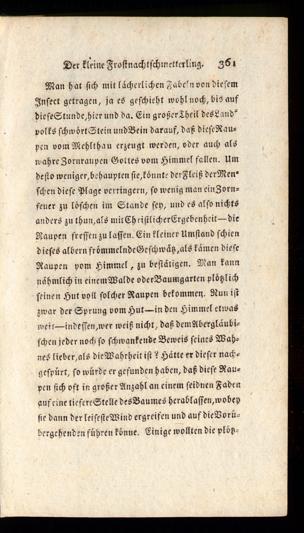 Der kleine Frostnachtschmetterling. 361
Man hat sich mit lächerlichen Fabeln von diesem
Insect getragen, ja es geschieht wohl noch, bis auf
diese Stunde, hier und da. Ein großer Theil des Land-
volks schwört Stein und Bein darauf, daß diese Rau-
pen vom Mehlthau erzeugt werden, oder auch als
wahre Zornraupen Gottes vom Himmel fallen. Um
desto weniger, behaupten sie, könnte der Fleiß der Men-
schen diese Plage verringern, so wenig man ein Zorn-
feuer zu löschen im Stande sey, und es also nichts
anders zu thun, als mit Christlicher Ergebenheit — die
Raupen fressen zu lassen. Ein kleiner Umstand schien
dieses albern frömmelnde Geschwätz, als kämen diese
Raupen vom Himmel, zu bestätigen. Man kann
nähmlich in einem Walde oder Baumgarten plötzlich
seinen Hut voll solcher Raupen bekommen. Nun ist
zwar der Sprung vom Hut — in den Himmel etwas
weit — indessen, wer weiß nicht, daß dem Abergläubi-
schen jeder noch so schwankende Beweis seines Wah-
nes lieber, als die Wahrheit ist? Hätte er dieser nach-
gespürt, so würde er gefunden haben, daß diese Rau-
pen sich oft in großer Anzahl an einem seidnen Faden
auf eine tiefere Stelle des Baumes herablassen, wobey
sie dann der leiseste Wind ergreifen und auf die Vorü-
bergehenden führen könne. Einige wollten die plötz-